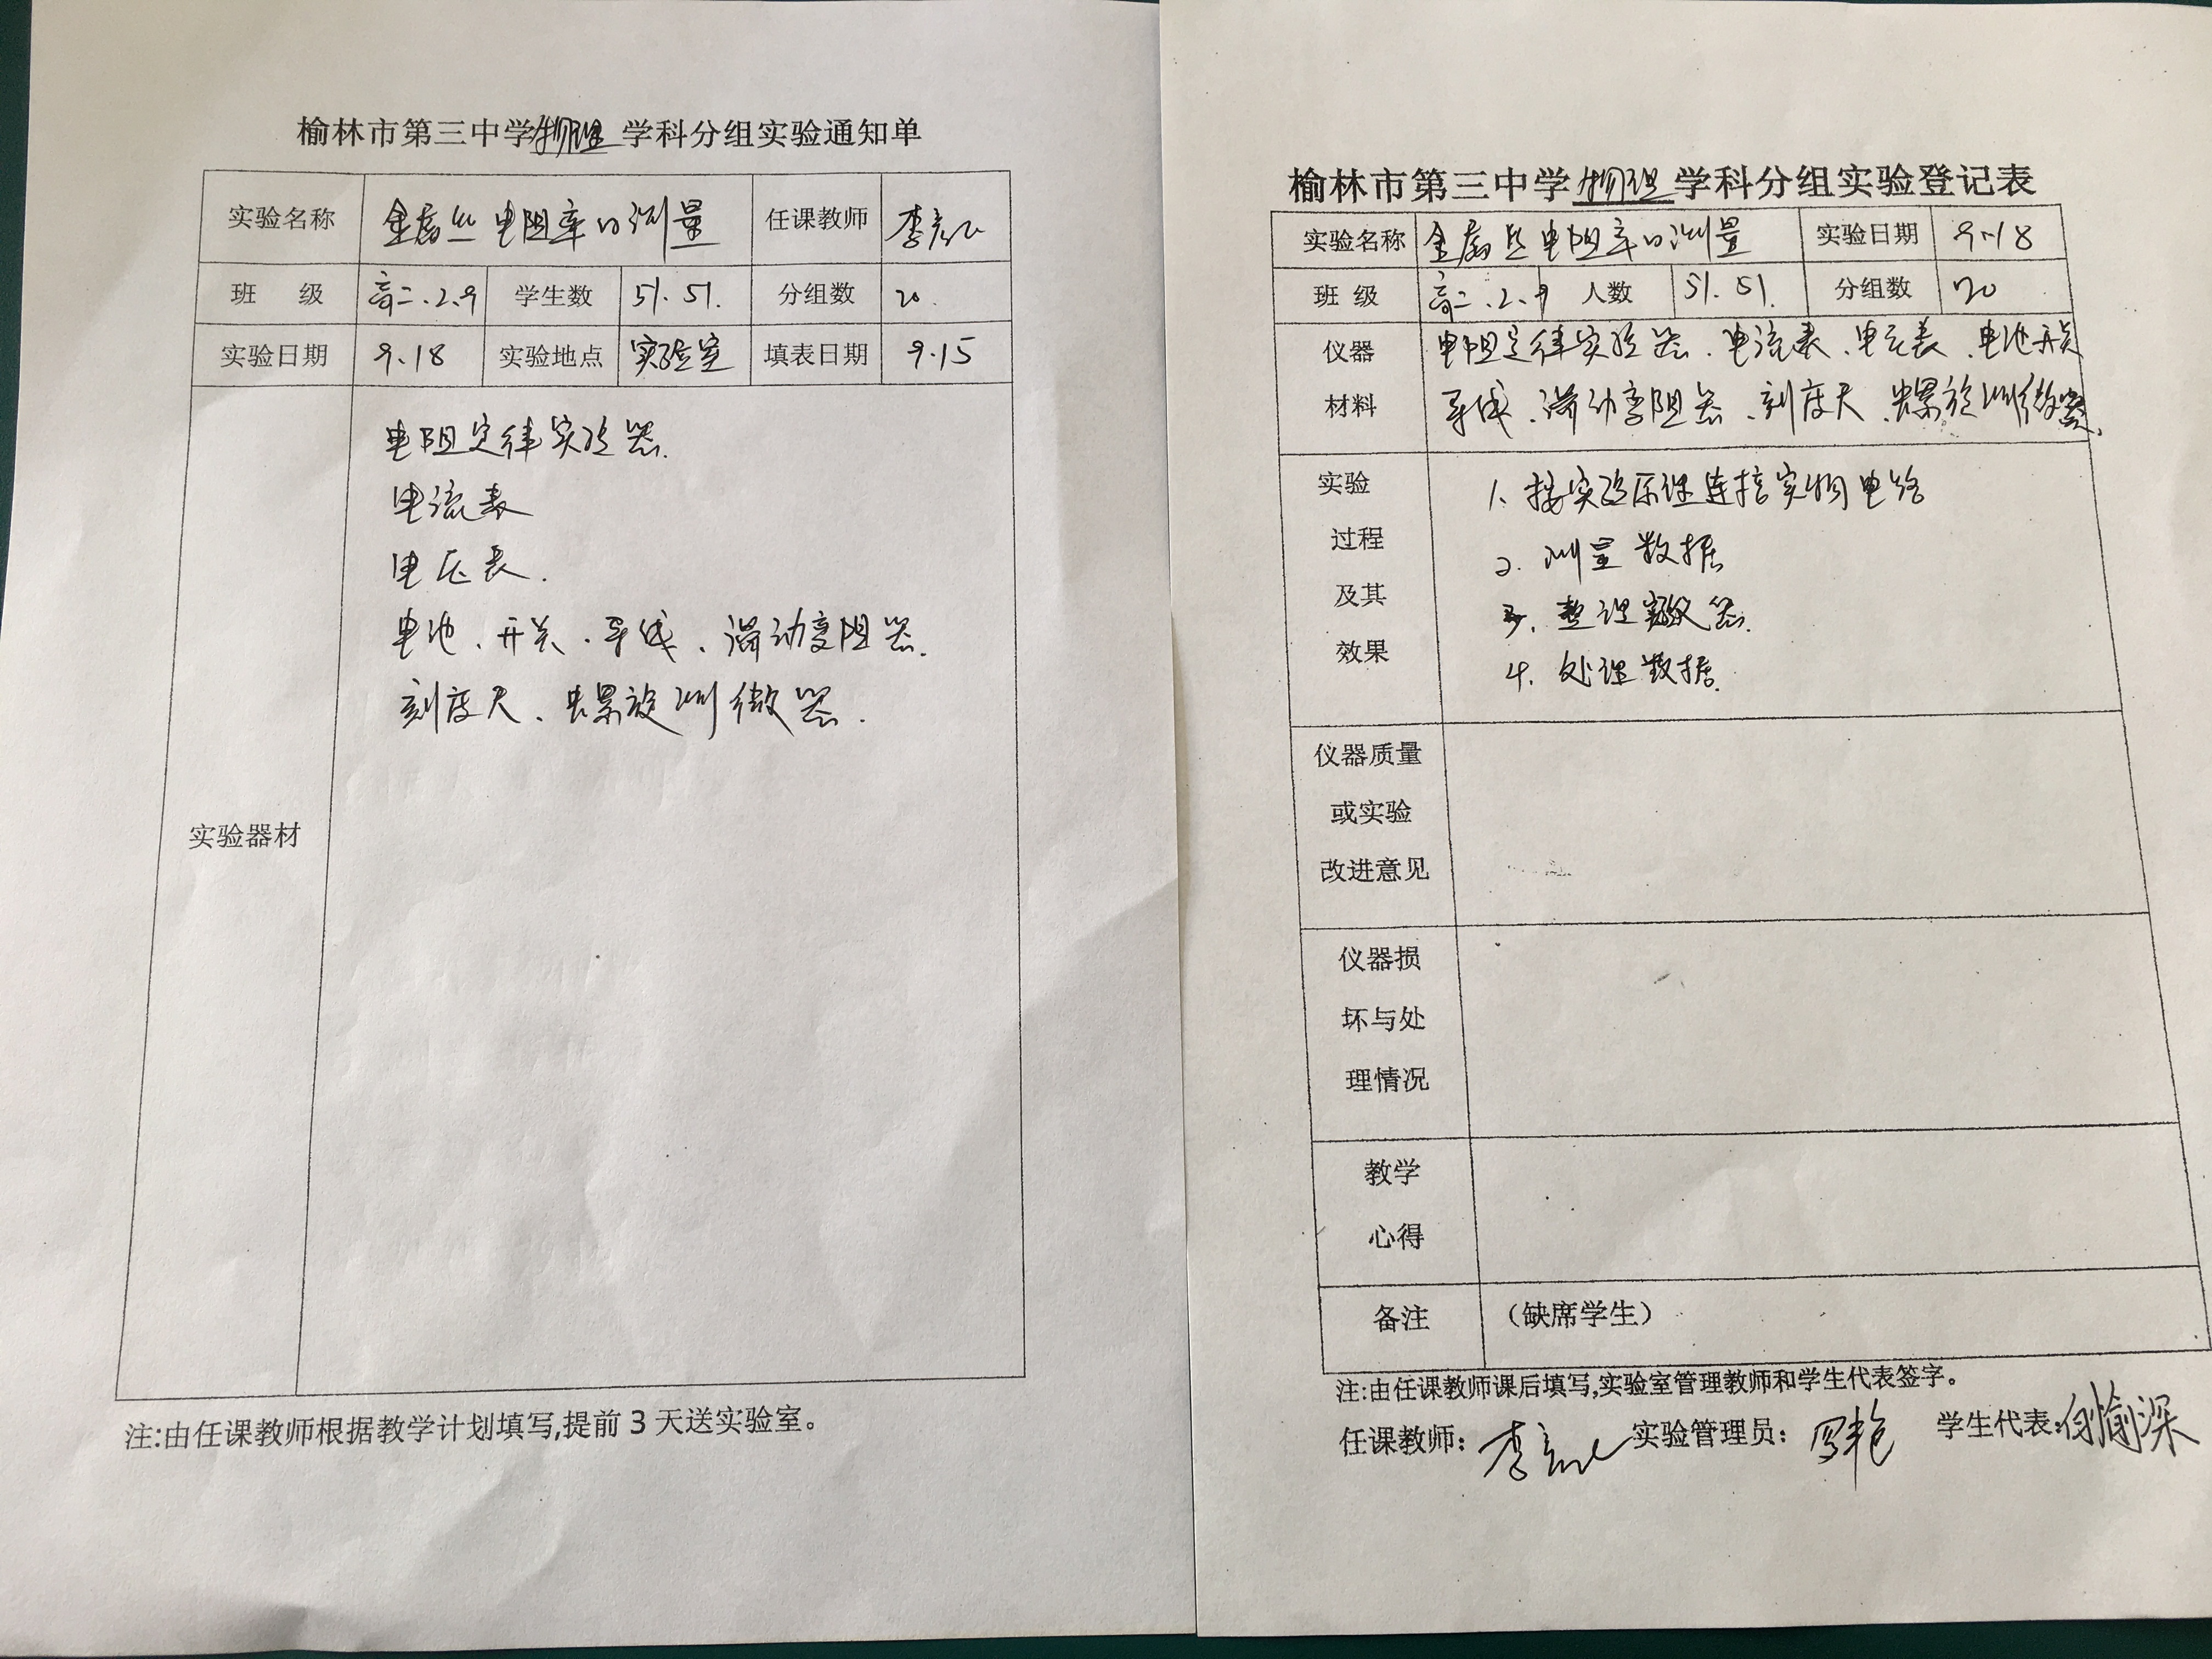 榆林市第三中学物理学科分组实验通知单
实验名称 金属丝电阻率的测量 任课教师 李
班 级 高二.2.9 学生数 51.51. 分组数 20.
实验日期 9.18 实验地点 实验室 填表日期 9.15
实验器材
电阻定律实验器.
电流表
电压表.
电池、开关、导线、滑动变阻器.
刻度尺、螺旋测微器.
注:由任课教师根据教学计划填写,提前3天送实验室。
榆林市第三中学物理学科分组实验登记表
实验名称 金属丝电阻率的测量 实验日期 9.18
班 级 高二.2.9 人数 51.51. 分组数 20
仪器 电阻定律实验器、电流表、电压表、电池开关
材料 导线、滑动变阻器、刻度尺、螺旋测微器.
实验 1、按实验原理连接实物电路
过程 2. 测量数据
及其 3. 整理器.
效果 4. 处理数据.
仪器质量
或实验
改进意见
仪器损
坏与处
理情况
教学
心得
备注 (缺席学生)
注:由任课教师课后填写,实验室管理教师和学生代表签字。
任课教师: 李 实验管理员: 罗艳 学生代表: